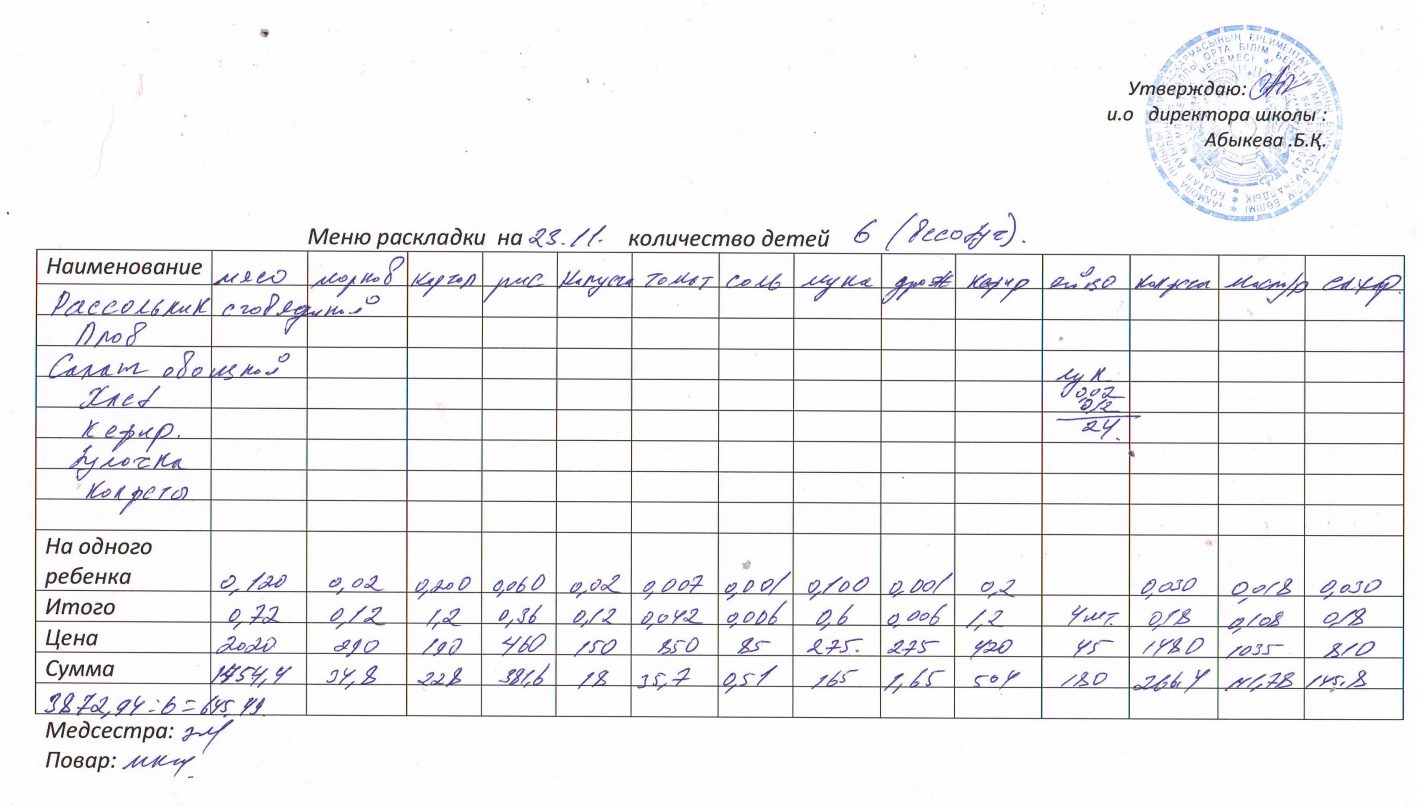 Утверждаю:
и.о директора школы :
Абыкева .Б.Қ.
Меню раскладки на 23.11. количество детей 6
Наименование мясо морков картоп рис капуста томат соль мука дрож кефир яйцо конфеты масл/р сахар
Рассольник с говядиной
Плов
Салат овощной
лук
Хлеб 0,02
0,12
Кефир. 24.
Булочка
Конфеты
На одного
ребенка 0,120 0,02 0,200 0,060 0,02 0,007 0,001 0,100 0,001 0,2 0,030 0,018 0,030
Итого 0,72 0,12 1,2 0,36 0,12 0,042 0,006 0,6 0,006 1,2 4шт. 0,18 0,108 0,18
Цена 2020 290 190 460 150 850 85 275. 275 420 45 1480 1035 810
Сумма 1454,4 34,8 228 18 35,7 0,51 165 1,65 504 180 266,4 111,78 145.8
3872,94÷6=645.49
Медсестра:
Повар: